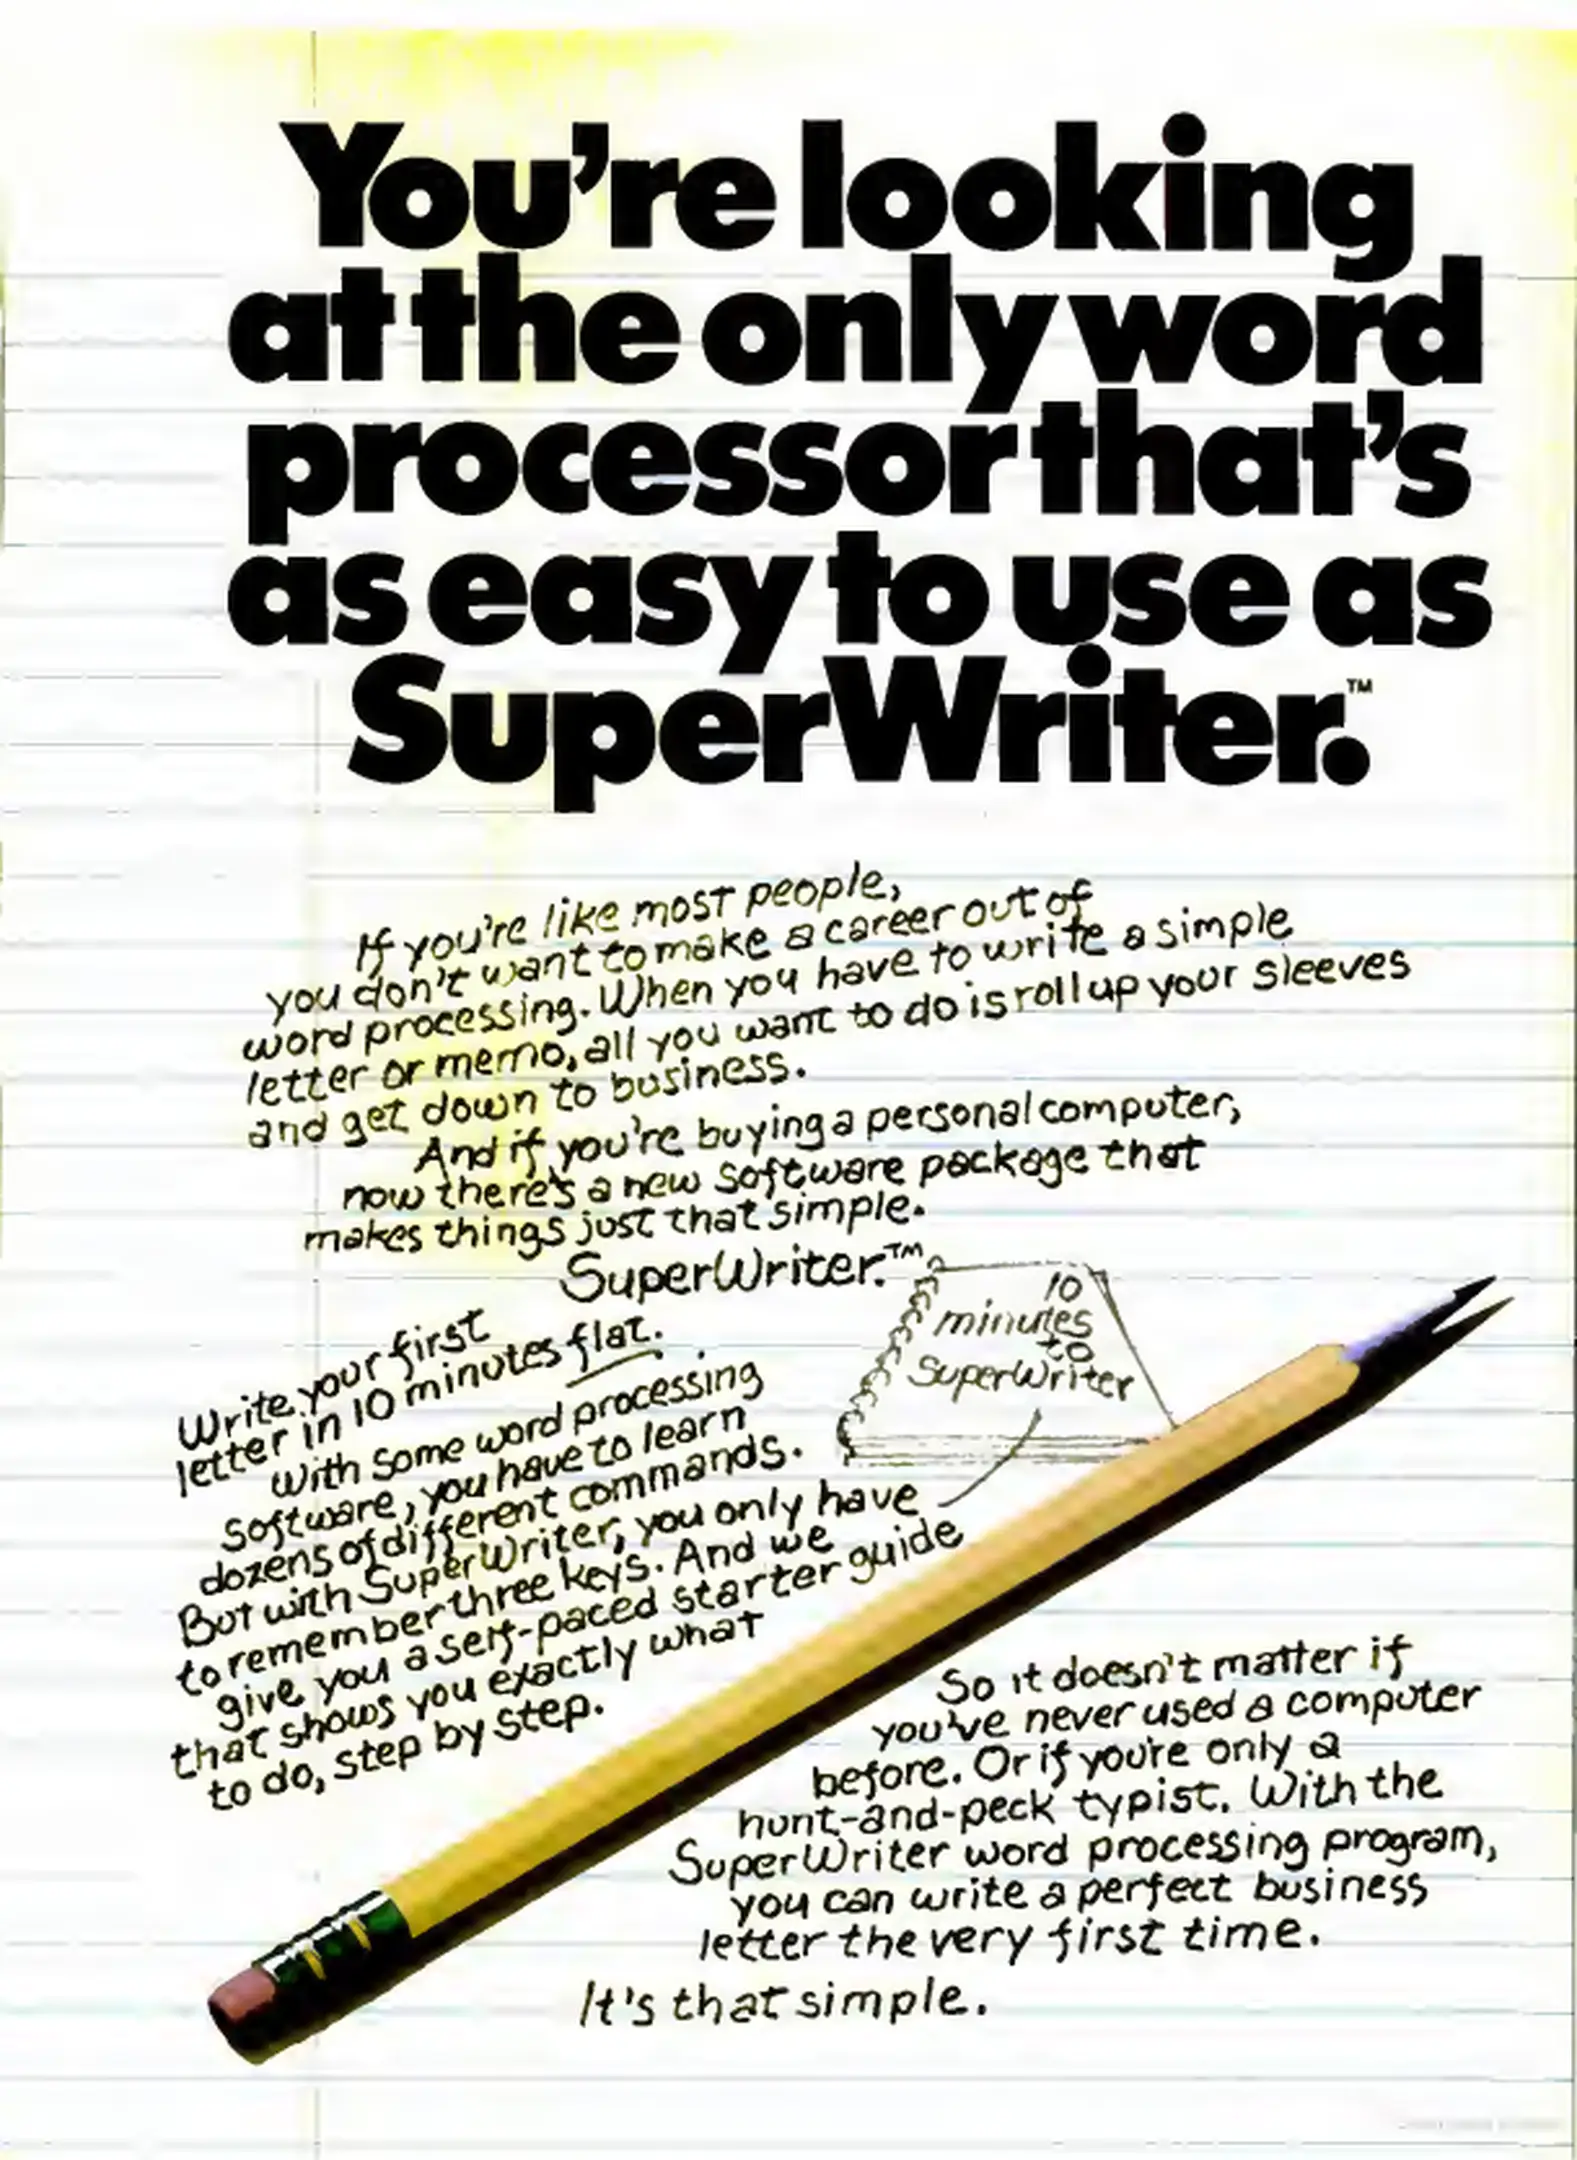 You're looking
at the only word
processor that's
as easy to use as
SuperWriter.™
If you're like most people,
you don't want to make a career out of
word processing. When you have to write a simple
letter or memo, all you want to do is roll up your sleeves
and get down to business.
And if you're buying a personal computer,
now there's a new software package that
makes things just that simple.
SuperWriter.™
10
minutes
to
SuperWriter
Write your first
letter in 10 minutes flat.
With some word processing
software, you have to learn
dozens of different commands.
But with SuperWriter, you only have
to remember three keys. And we
give you a self-paced starter guide
that shows you exactly what
to do, step by step.
So it doesn't matter if
you've never used a computer
before. Or if you're only a
hunt-and-peck typist. With the
SuperWriter word processing program,
you can write a perfect business
letter the very first time.
It's that simple.